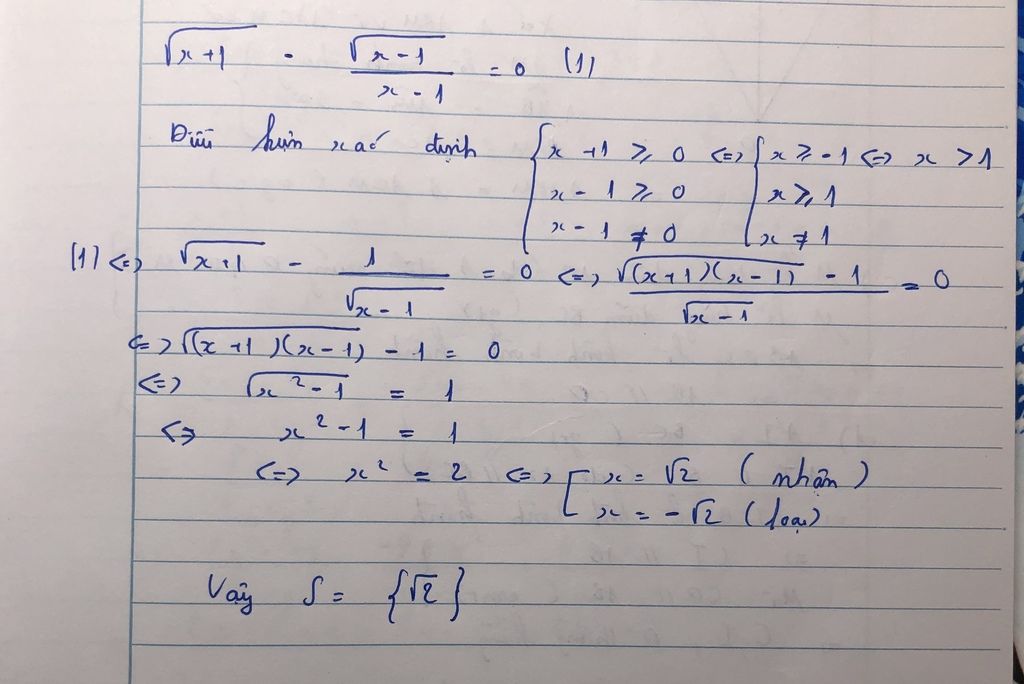 √(x+1) - √(x-1)/(x-1) = 0 (1)
Điều kiện xác định { x+1 ⩾ 0 <=> { x ⩾ -1 <=> x > 1
x - 1 ⩾ 0 x ⩾ 1
x - 1 ≠ 0 x ≠ 1
(1) <=> √(x+1) - 1/√(x-1) = 0 <=> (√((x+1)(x-1)) - 1)/√(x-1) = 0
<=> √((x+1)(x-1)) - 1 = 0
<=> √(x²-1) = 1
<=> x² - 1 = 1
<=> x² = 2 <=> [ x = √2 (nhận)
x = -√2 (loại)
Vậy S = {√2}